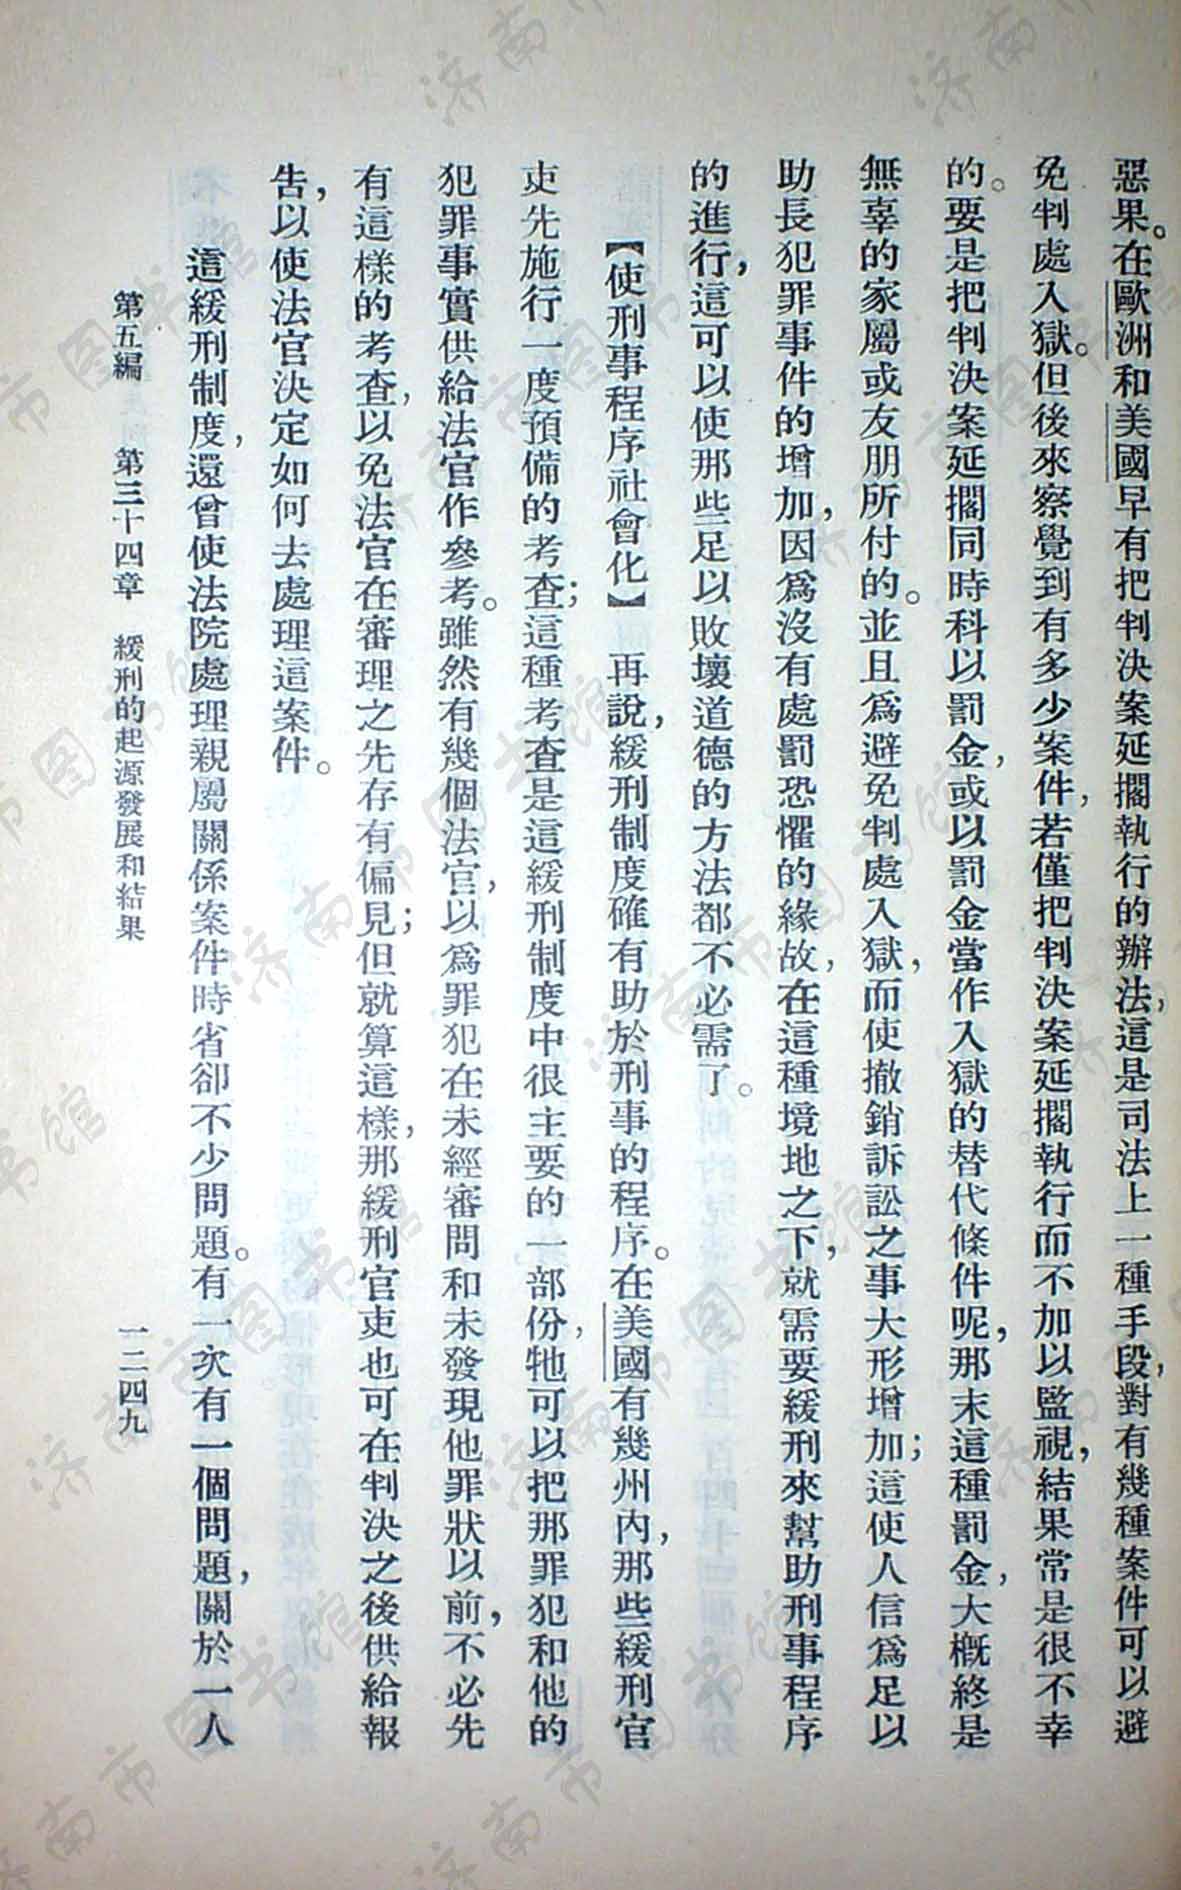 惡果。在歐洲和美國早有把判決案延擱執行的辦法，這是司法上一種手段，對有幾種案件可以避
免判處入獄。但後來察覺到有多少案件，若僅把判決案延擱執行而不加以監視，結果常是很不幸
的。要是把判決案延擱同時科以罰金，或以罰金當作入獄的替代條件呢，那末這種罰金，大概終是
無辜的家屬或友朋所付的。並且爲避免判處入獄，而使撤銷訴訟之事大形增加；這使人信爲足以
助長犯罪事件的增加，因爲沒有處罰恐懼的緣故，在這種境地之下，就需要緩刑來幫助刑事程序
的進行，這可以使那些足以敗壞道德的方法都不必需了。
【使刑事程序社會化】　再說，緩刑制度確有助於刑事的程序。在美國有幾州內，那些緩刑官
吏先施行一度預備的考查；這種考查是這緩刑制度中很主要的一部份，牠可以把那罪犯和他的
犯罪事實供給法官作參考。雖然有幾個法官，以爲罪犯在未經審問和未發現他罪狀以前，不必先
有這樣的考查，以免法官在審理之先存有偏見；但就算這樣，那緩刑官吏也可在判決之後供給報
告，以使法官決定如何去處理這案件。
這緩刑制度，還曾使法院處理親屬關係案件時省卻不少問題。有一次有一個問題，關於一人
第五編　第三十四章　緩刑的起源發展和結果　一二四九
济南市图书馆